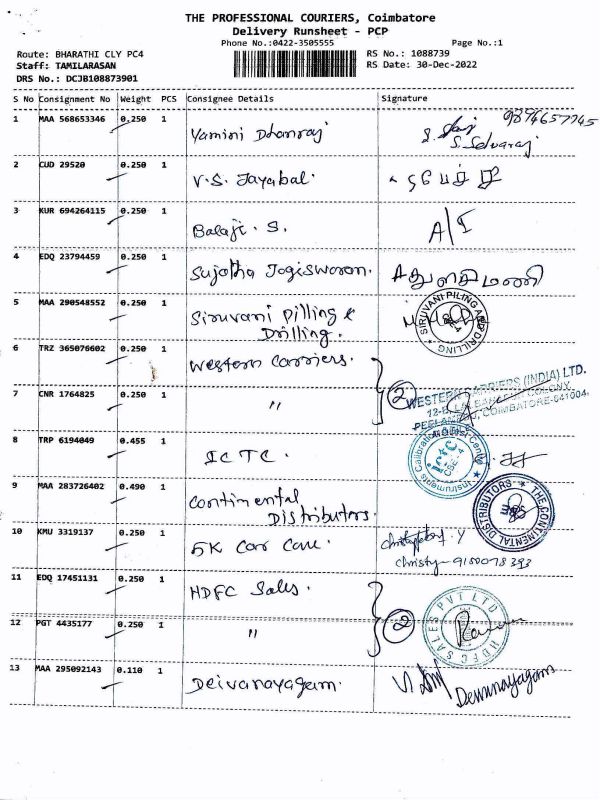 THE PROFESSIONAL COURIERS, Coimbatore
Delivery Runsheet - PCP
Phone No.:0422-3505555 Page No.:1
Route: BHARATHI CLY PC4 RS No.: 1088739
Staff: TAMILARASAN RS Date: 30-Dec-2022
DRS No.: DCJB108873901
S No Consignment No Weight PCS Consignee Details Signature
1 MAA 568653346 0.250 1 Yamini Dhanraj S. Selvaraj
2 CUD 29520 0.250 1 V.S. Jayabal.
3 KUR 694264115 0.250 1 Balaji. S.
4 EDQ 23794459 0.250 1 Sujatha Jogisworan.
5 MAA 290548552 0.250 1 Siruvani Pilling &
Drilling. SIRUVANI PILING AND DRILLING
6 TRZ 365076602 0.250 1 Western Carriers.
7 CNR 1764825 0.250 1 " 2 WESTERN CARRIERS (INDIA) LTD.
COLONY,
COIMBATORE-641004.
8 TRP 6194049 0.455 1 ICTC. Instruments Calibration Centre
9 MAA 283726402 0.490 1 Continental
Distributors. THE CONTINENTAL DISTRIBUTORS
10 KMU 3319137 0.250 1 5K Car Care.
christy - 9150078393
11 EDQ 17451131 0.250 1 HDFC Sales.
12 PGT 4435177 0.250 1 " 2 HDFC SALES PVT LTD
13 MAA 295092143 0.110 1 Deivanayagam. Deivanayagam